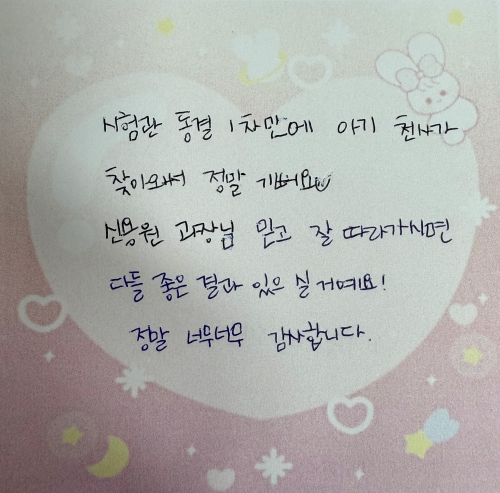 시험관 동결 1차만에 아기 천사가
찾아와서 정말 기뻐요
신용원 과장님 믿고 잘 따라가시면
다들 좋은 결과 있으실거예요!
정말 너무너무 감사합니다.